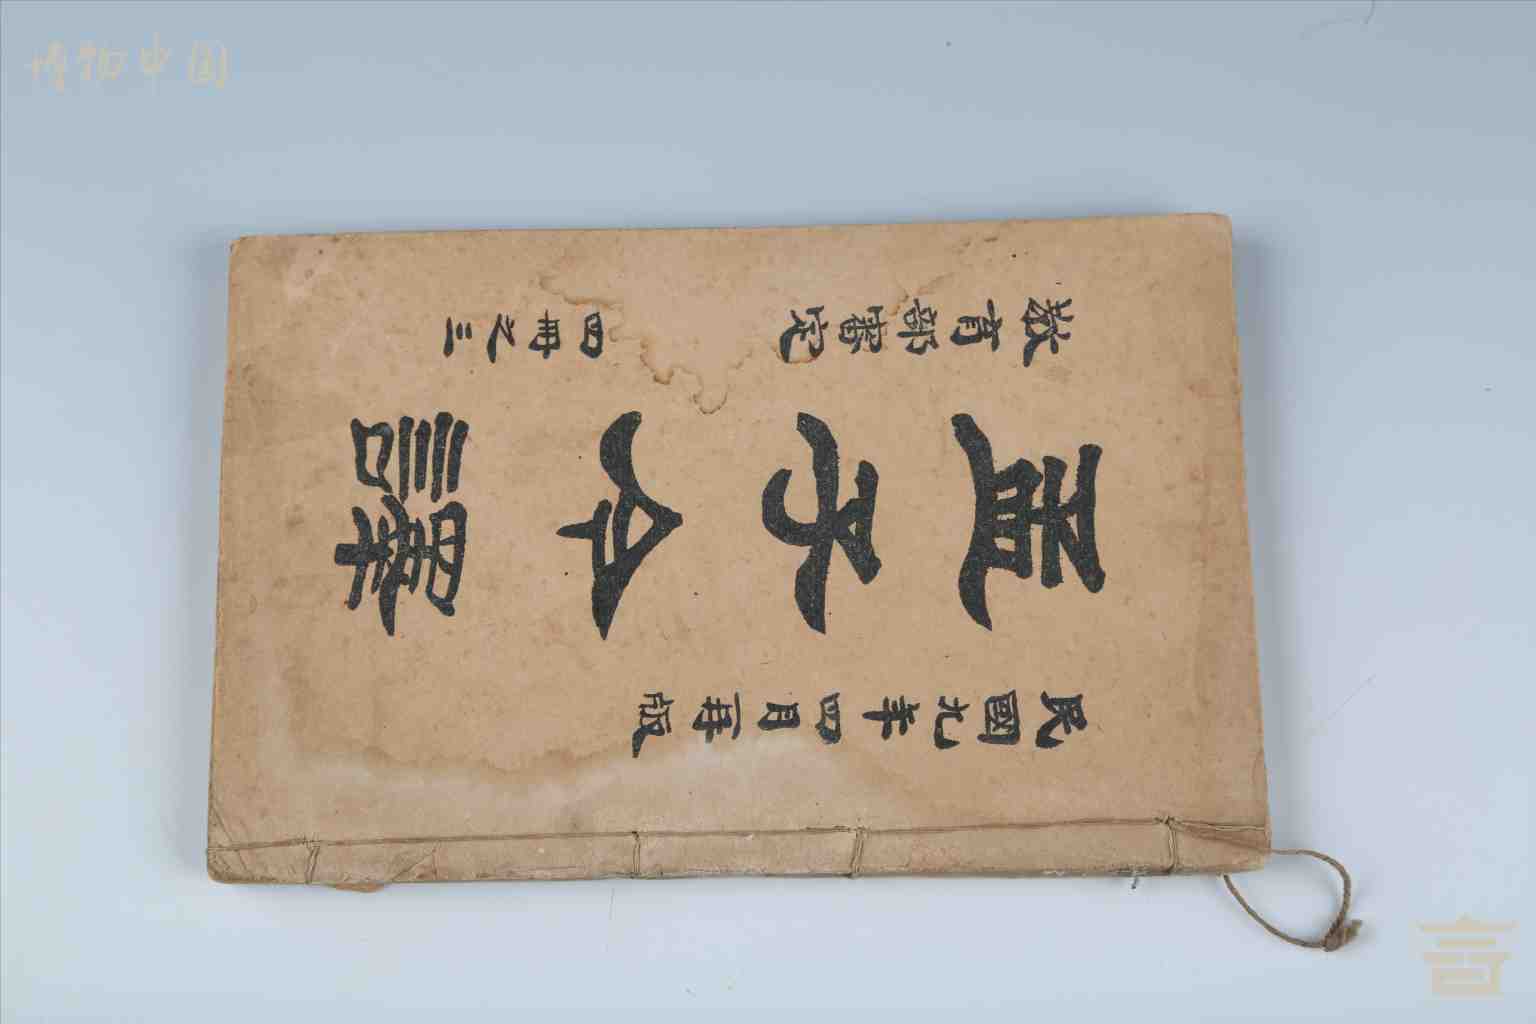 博物中国
民國九年四月再版
孟子今譯
教育部審定
四冊之三